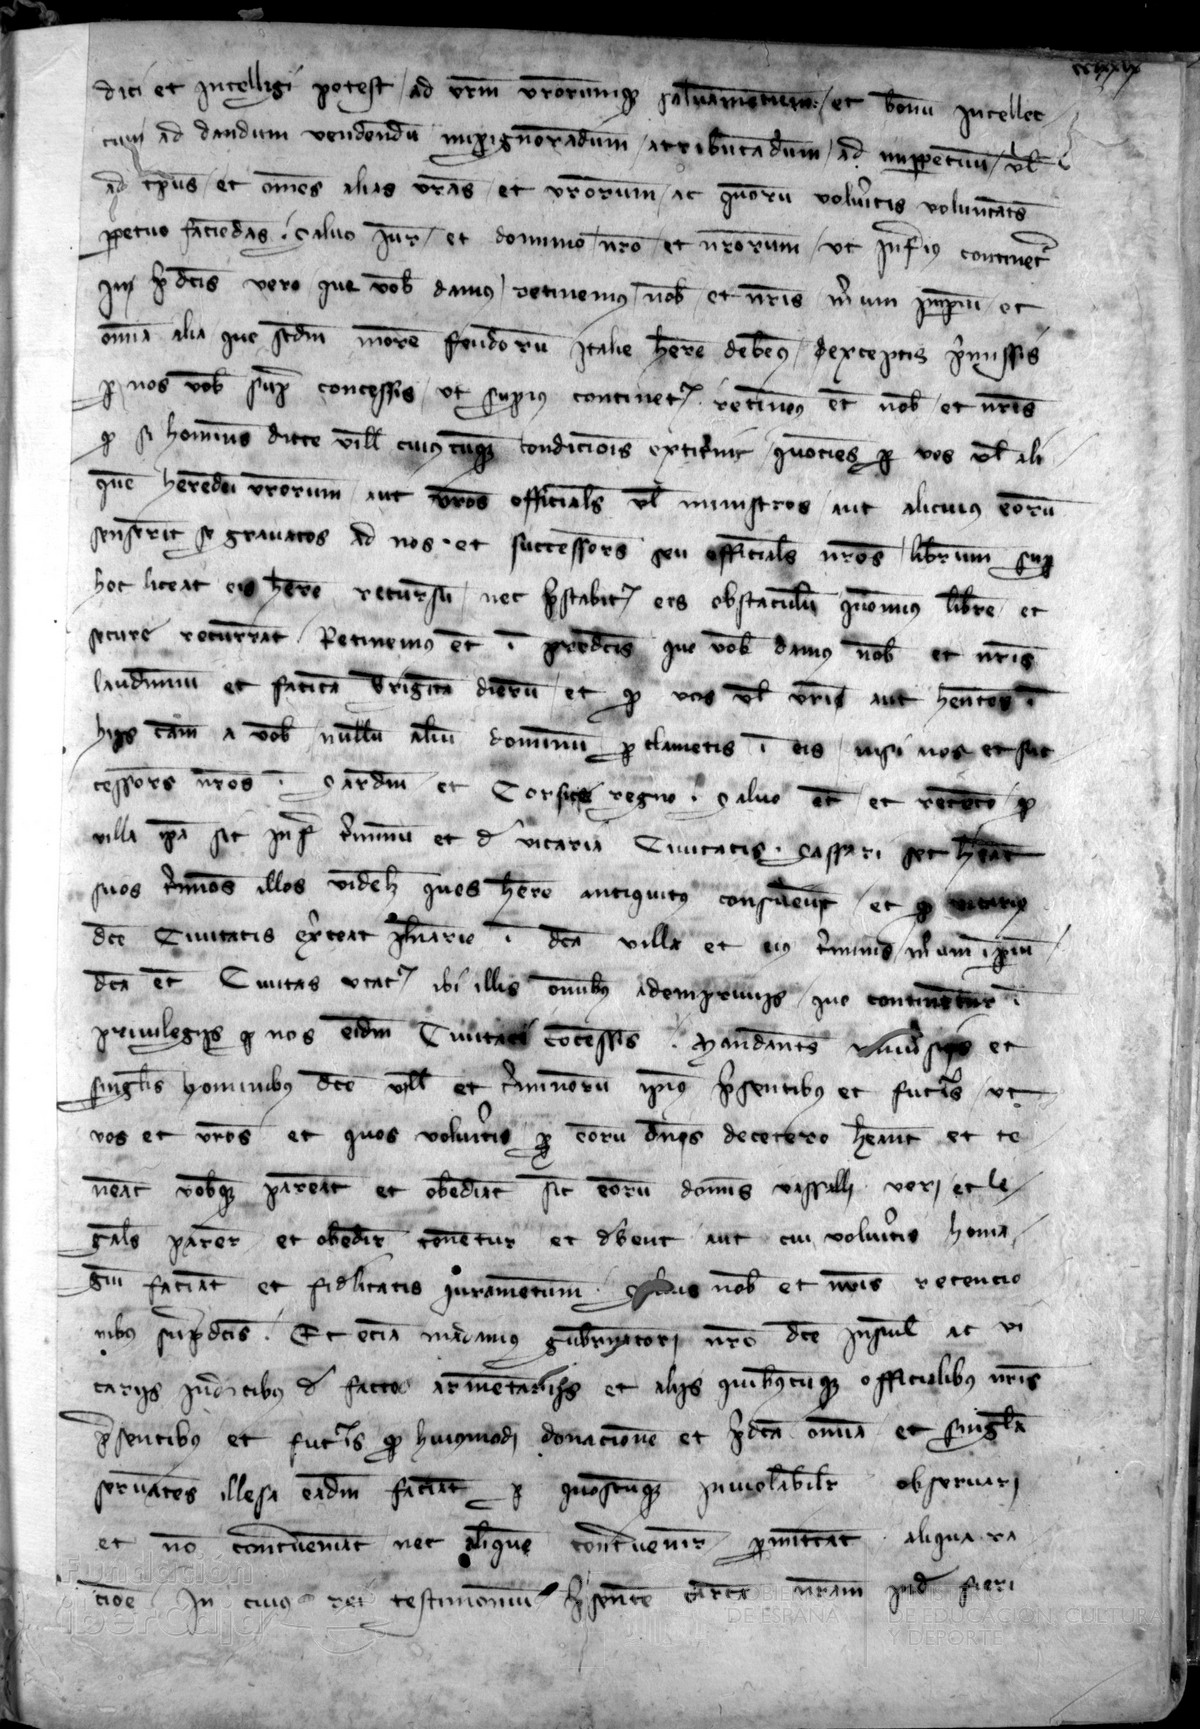 ccxxix
dici et intelligi potest / ad vrm vrorumq salvamentum / et bonu intellec
tum ad dandum vendendu impignoradum / atribuendum / ad imppetuu / vl
ad tpus / et omes alias vras / et vrorum / ac quoru volueitis voluntats
ppetuo faciedas . Salvo iur / et dominio nro et nrorum / ut infius continet
In pdcis vero que vob damus / retinemus nob / et nris mum impiu / et
omia alia que scdm more feudoru Italie here debem / exceptis pmissis
p nos vob sup concessis / ut supius continet . Retinem et nob / et nris
q si homines dicte vill cuiuscuq condiciois extitint / quocies p vos vl ali
que heredu vrorum / aut vros officials vl ministros / aut alicuius eoru
senserit se gravatos ad nos . et successors seu officials nros / librum sup
hoc liceat eis here recursu / nec pstabit eis obstaculu quominus libre et
secure recurrat Retinemus et i predcis que vob damus nob et nris
laudimiu et faticā trigita dieru / et q vos vl vri aut hentes i
hijs cam a vob / nullu aliu dominu pclametis i eis / nisi nos et suc
cessors nros i Sardin et Corsice regno . Salvo et et retento q
villa ipa sit inf tminu et d vicaria Civitatis . Sassari set heat
suos tminos illos videlz ques here antiquitus consuevit / et q vicarius
dce Civitatis exceat plnarie i dca villa et eius tminis / mum ipiu
dca et Civitas utat ibi illis omibus ademprivijs / que continentur i
privilegijs p nos eidm Civitati cocessis . Mandants univsis et
singlis hominibus dce vill et tminoru ipius psentibus et futis / ut
vos et vros et quos volueitis p eoru dnis decetero heant et te
neat vobq pareat et obediat sic eoru domis vassalli veri et le
gals parer et obedir tenetur et dbent aut cui volueitis homa
giu faciat et fidlitatis iuramentum . Salvis nob et nris retencio
nibus supdcis . Et ecia madamus gubrnatori nro dce insul ac vi
carijs iudicibus d facto armentarijs et alijs quibuscuq officialibus nris
psentibus et futis q huiusmodi donacione et pdca omia et singla
servates illesa eadm faciat p quoscuq inviolabilr observari
et no conveniat nec aliquē contvenir pmittat aliqua ra
cioe In cuius rei testimoniu psente carta nram ind fieri
Fundación
iberCaja
GOBIERNO
DE ESPAÑA
MINISTERIO
DE EDUCACIÓN, CULTURA
Y DEPORTE